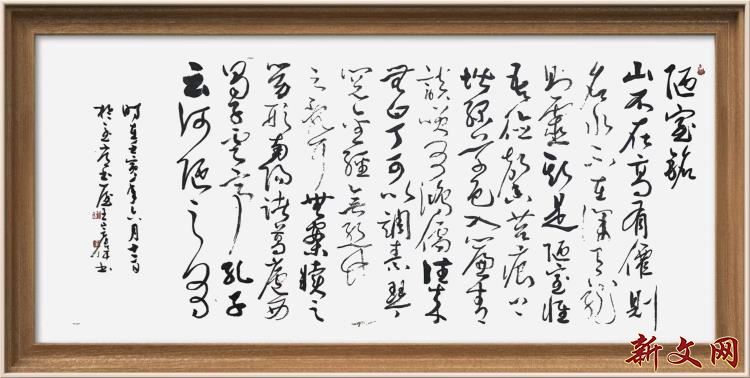 陋室銘
山不在高有僊則
名水不在深有龍
則靈斯是陋室惟
吾德馨苔痕上
階綠草色入簾青
談笑有鴻儒往来
無白丁可以調素琴
閱金經無絲竹
之亂耳無案牘之
勞形南陽諸葛廬西
蜀子雲亭孔子
云何陋之有
時在壬寅年六月十二日
書屋王書
新文网